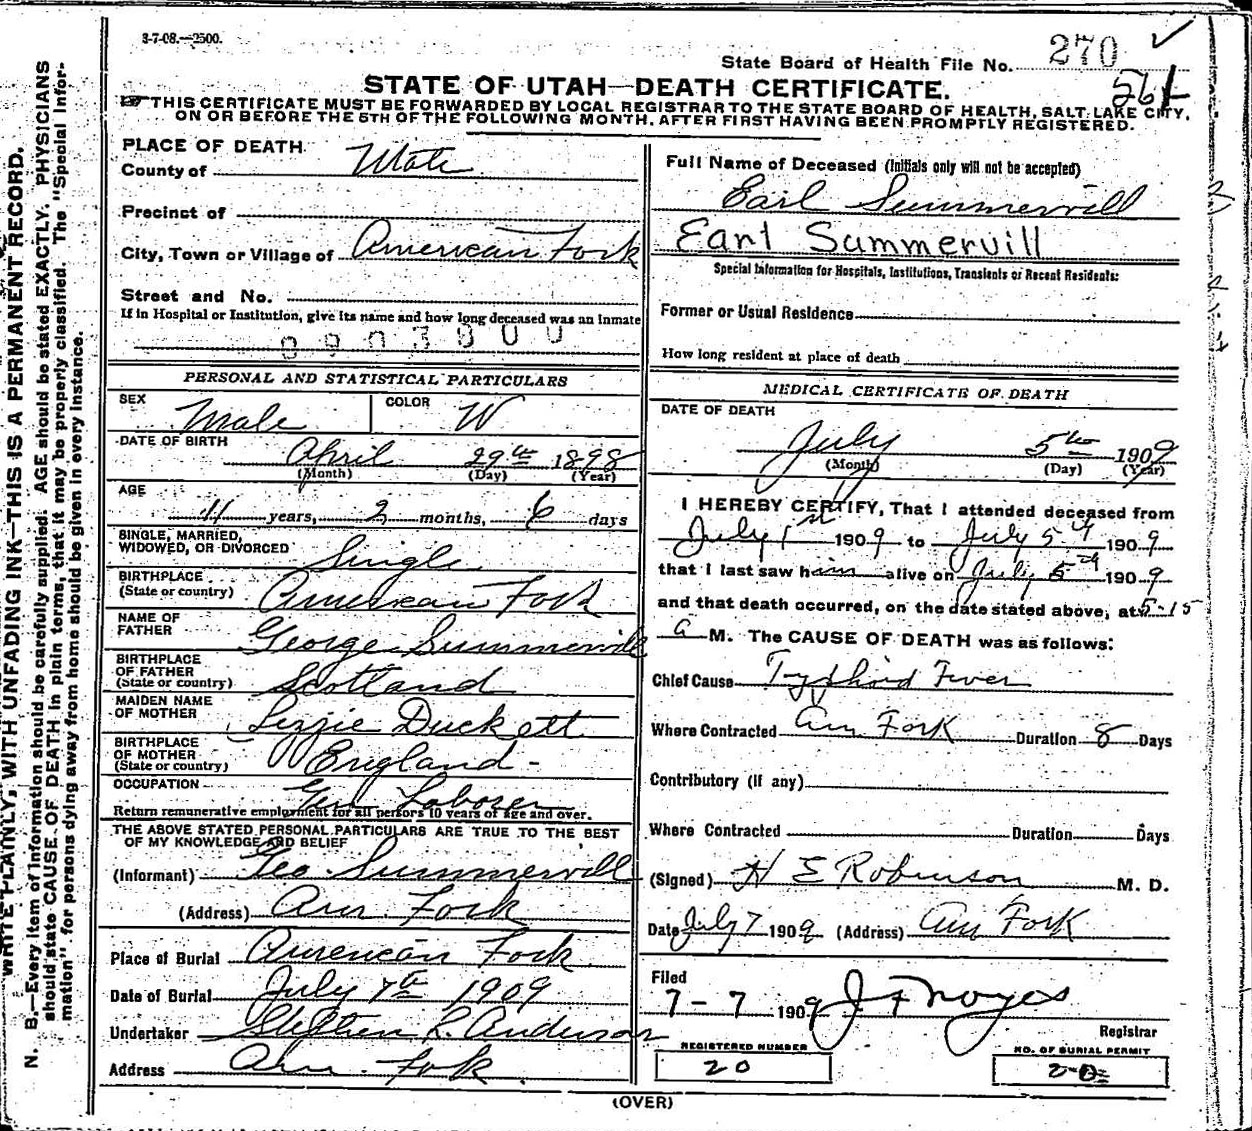 3-7-08.—2500.
State Board of Health File No. 270
STATE OF UTAH—DEATH CERTIFICATE.
THIS CERTIFICATE MUST BE FORWARDED BY LOCAL REGISTRAR TO THE STATE BOARD OF HEALTH, SALT LAKE CITY,
ON OR BEFORE THE 5TH OF THE FOLLOWING MONTH, AFTER FIRST HAVING BEEN PROMPTLY REGISTERED.
WRITE PLAINLY, WITH UNFADING INK—THIS IS A PERMANENT RECORD.
N. B.—Every item of information should be carefully supplied. AGE should be stated EXACTLY. PHYSICIANS
should state CAUSE OF DEATH in plain terms, that it may be properly classified. The "Special Infor-
mation" for persons dying away from home should be given in every instance.
PLACE OF DEATH
County of Utah
Precinct of
City, Town or Village of American Fork
Street and No.
If in Hospital or Institution, give its name and how long deceased was an inmate
0903800
PERSONAL AND STATISTICAL PARTICULARS
SEX Male COLOR W
DATE OF BIRTH
April 29th 1898
(Month) (Day) (Year)
AGE
11 years, 2 months, 6 days
SINGLE, MARRIED,
WIDOWED, OR DIVORCED Single
BIRTHPLACE
(State or country) American Fork
NAME OF
FATHER George Summervill
BIRTHPLACE
OF FATHER
(State or country) Scotland
MAIDEN NAME
OF MOTHER Lizzie Duckett
BIRTHPLACE
OF MOTHER
(State or country) England -
OCCUPATION
Gen Laborer
Return remunerative employment for all persons 10 years of age and over.
THE ABOVE STATED PERSONAL PARTICULARS ARE TRUE TO THE BEST
OF MY KNOWLEDGE AND BELIEF
(Informant) Geo. Summervill
(Address) Am. Fork
Place of Burial American Fork
Date of Burial July 7th 1909
Undertaker Stephen L. Anderson
Address Am. Fork.
Full Name of Deceased (Initials only will not be accepted)
Earl Summervill
Earl Summervill
Special Information for Hospitals, Institutions, Transients or Recent Residents:
Former or Usual Residence
How long resident at place of death
MEDICAL CERTIFICATE OF DEATH
DATE OF DEATH
July 5th 1909
(Month) (Day) (Year)
I HEREBY CERTIFY, That I attended deceased from
July 1st 1909 to July 5th 1909
that I last saw him alive on July 5th 1909
and that death occurred, on the date stated above, at 5-15
a M. The CAUSE OF DEATH was as follows:
Chief Cause Typhoid Fever
Where Contracted Am Fork Duration 8 Days
Contributory (if any)
Where Contracted Duration Days
(Signed) H E Robinson M. D.
Date July 7 1909 (Address) Am Fork
Filed
7-7 1909 J F Noyes
Registrar
REGISTERED NUMBER
20
NO. OF BURIAL PERMIT
20
(OVER)